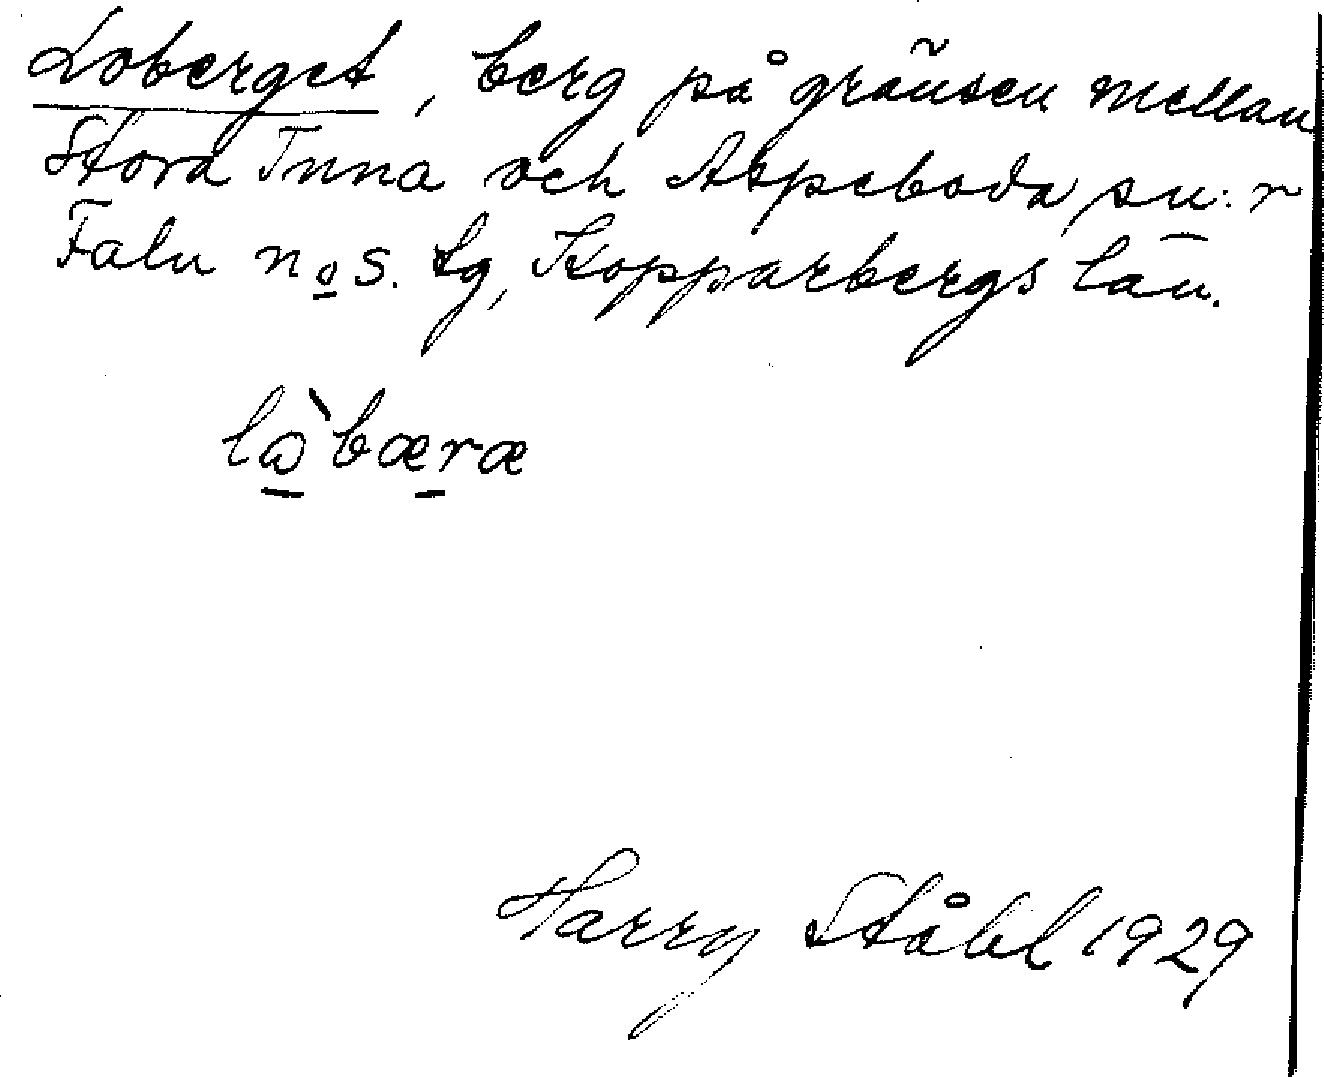 Loberget, berg på gränsen mellan
Stora Tuna och Aspeboda sn:r
Falu n o s. tg, Kopparbergs län.
lὼbæræ
Harry Ståhl 1929